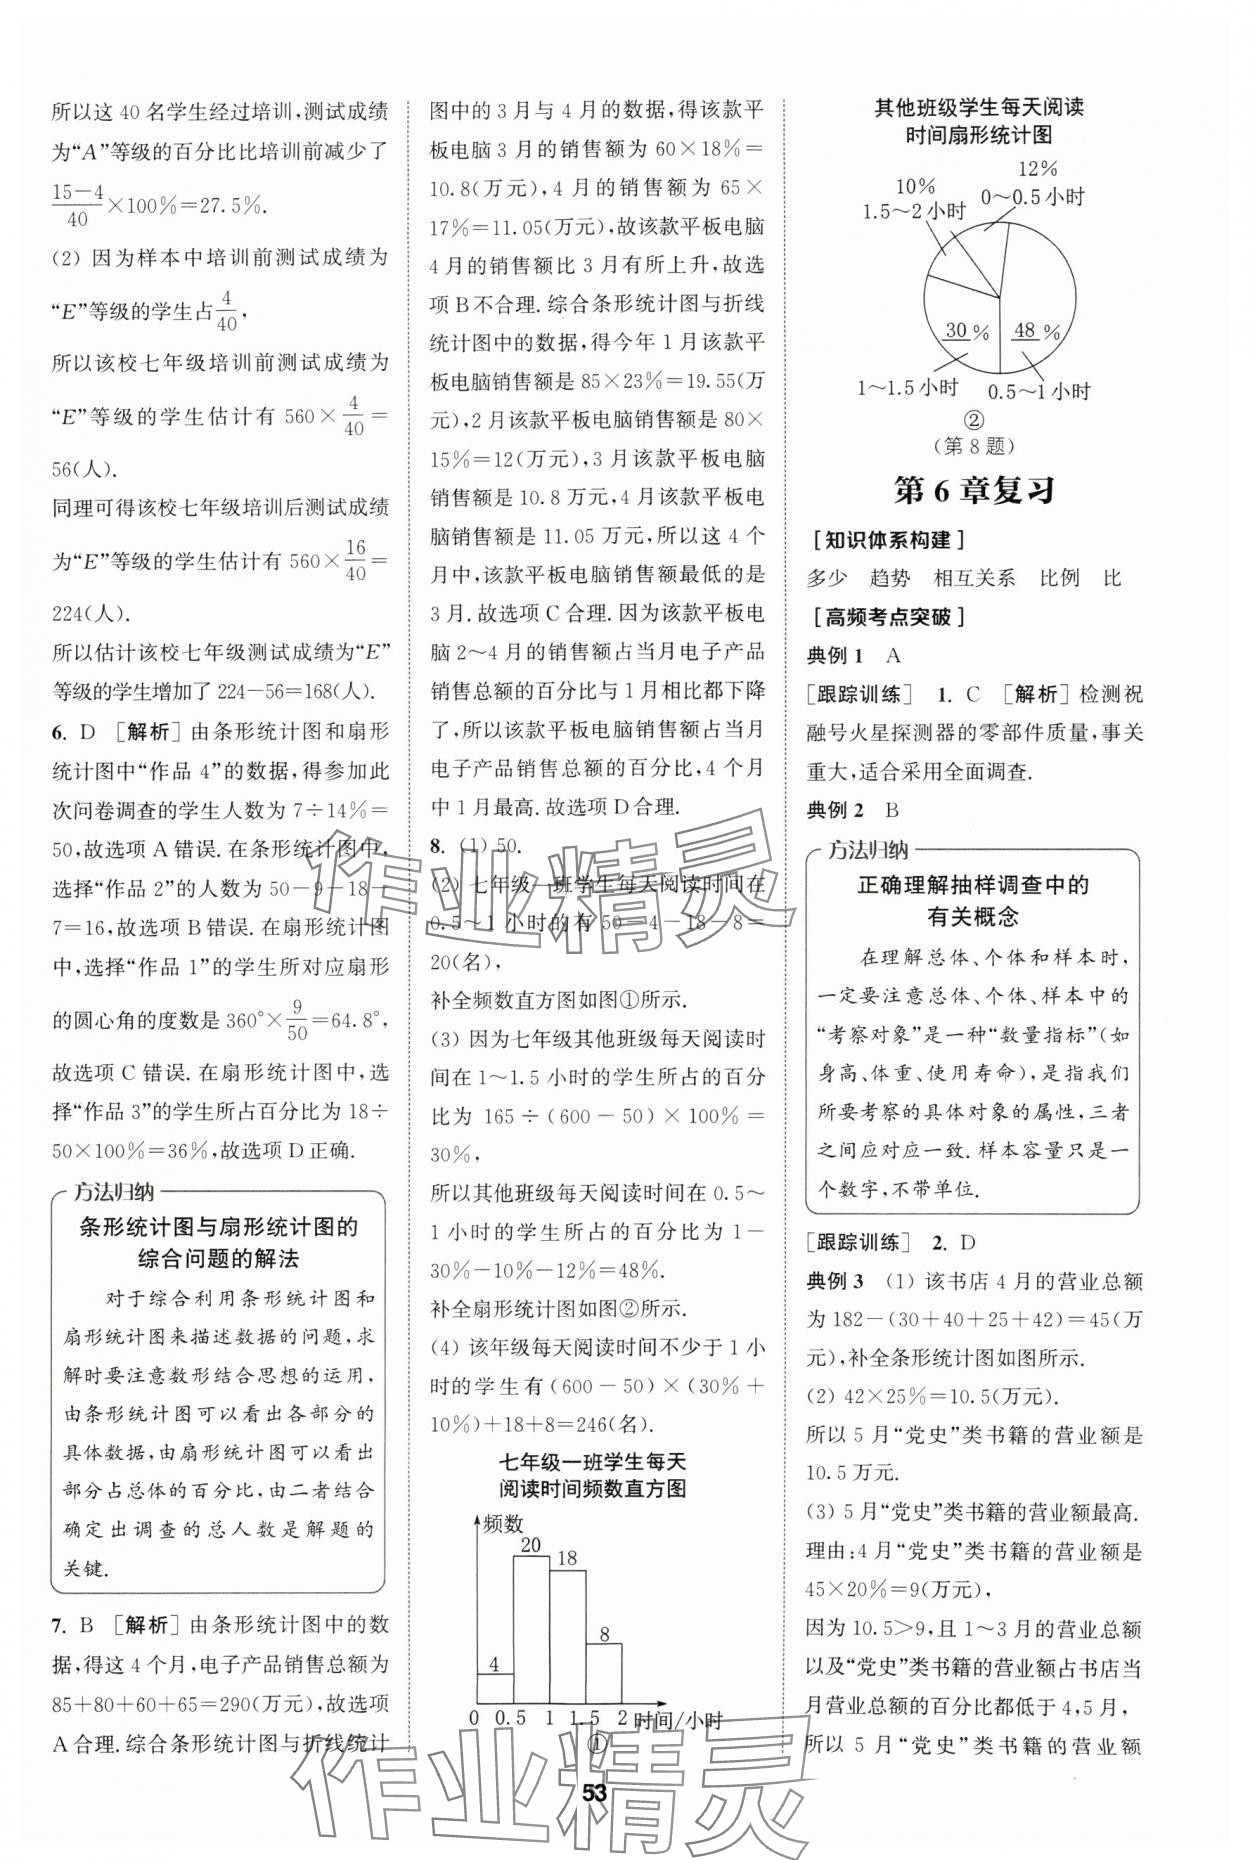 所以这 40 名学生经过培训,测试成绩
为“A”等级的百分比比培训前减少了
15-4/40×100%=27.5%.
(2) 因为样本中培训前测试成绩为
“E”等级的学生占4/40,
所以该校七年级培训前测试成绩为
“E”等级的学生估计有 560×4/40=
56(人).
同理可得该校七年级培训后测试成绩
为“E”等级的学生估计有 560×16/40=
224(人).
所以估计该校七年级测试成绩为“E”
等级的学生增加了 224-56=168(人).
6. D [解析] 由条形统计图和扇形
统计图中“作品 4”的数据,得参加此
次问卷调查的学生人数为 7÷14%=
50,故选项 A 错误. 在条形统计图中,
选择“作品 2”的人数为 50-9-18-
7=16,故选项 B 错误. 在扇形统计图
中,选择“作品 1”的学生所对应扇形
的圆心角的度数是 360°×9/50=64.8°,
故选项 C 错误. 在扇形统计图中,选
择“作品 3”的学生所占百分比为 18÷
50×100%=36%,故选项 D 正确.
方法归纳
条形统计图与扇形统计图的
综合问题的解法
对于综合利用条形统计图和
扇形统计图来描述数据的问题,求
解时要注意数形结合思想的运用,
由条形统计图可以看出各部分的
具体数据,由扇形统计图可以看出
部分占总体的百分比,由二者结合
确定出调查的总人数是解题的
关键.
7. B [解析] 由条形统计图中的数
据,得这 4 个月,电子产品销售总额为
85+80+60+65=290(万元),故选项
A 合理. 综合条形统计图与折线统计
图中的 3 月与 4 月的数据,得该款平
板电脑 3 月的销售额为 60×18%=
10.8(万元),4 月的销售额为 65×
17%=11.05(万元),故该款平板电脑
4 月的销售额比 3 月有所上升,故选
项 B 不合理. 综合条形统计图与折线
统计图中的数据,得今年 1 月该款平
板电脑销售额是 85×23%=19.55(万
元),2 月该款平板电脑销售额是 80×
15%=12(万元),3 月该款平板电脑
销售额是 10.8 万元,4 月该款平板电
脑销售额是 11.05 万元,所以这 4 个
月中,该款平板电脑销售额最低的是
3 月. 故选项 C 合理. 因为该款平板电
脑 2～4 月的销售额占当月电子产品
销售总额的百分比与 1 月相比都下降
了,所以该款平板电脑销售额占当月
电子产品销售总额的百分比,4 个月
中 1 月最高. 故选项 D 合理.
8. (1) 50.
(2) 七年级一班学生每天阅读时间在
0.5～1 小时的有 50-4-18-8=
20(名),
补全频数直方图如图①所示.
(3) 因为七年级其他班级每天阅读时
间在 1～1.5 小时的学生所占的百分
比为 165÷(600-50)×100%=
30%,
所以其他班级每天阅读时间在 0.5～
1 小时的学生所占的百分比为 1-
30%-10%-12%=48%.
补全扇形统计图如图②所示.
(4) 该年级每天阅读时间不少于 1 小
时的学生有(600-50)×(30%+
10%)+18+8=246(名).
七年级一班学生每天
阅读时间频数直方图
频数
20
18
8
4
0 0.5 1 1.5 2 时间/小时
①
其他班级学生每天阅读
时间扇形统计图
12%
10%
0～0.5 小时
1.5～2 小时
30 % 48 %
1～1.5 小时 0.5～1 小时
②
(第 8 题)
第 6 章复习
[知识体系构建]
多少 趋势 相互关系 比例 比
[高频考点突破]
典例 1 A
[跟踪训练] 1. C [解析] 检测祝
融号火星探测器的零部件质量,事关
重大,适合采用全面调查.
典例 2 B
方法归纳
正确理解抽样调查中的
有关概念
在理解总体、个体和样本时,
一定要注意总体、个体、样本中的
“考察对象”是一种“数量指标”(如
身高、体重、使用寿命),是指我们
所要考察的具体对象的属性,三者
之间应对应一致. 样本容量只是一
个数字,不带单位.
[跟踪训练] 2. D
典例 3 (1) 该书店 4 月的营业总额
为 182-(30+40+25+42)=45(万
元),补全条形统计图如图所示.
(2) 42×25%=10.5(万元).
所以 5 月“党史”类书籍的营业额是
10.5 万元.
(3) 5 月“党史”类书籍的营业额最高.
理由:4 月“党史”类书籍的营业额是
45×20%=9(万元),
因为 10.5>9,且 1～3 月的营业总额
以及“党史”类书籍的营业额占书店当
月营业总额的百分比都低于 4,5 月,
所以 5 月“党史”类书籍的营业额
53
作业精灵
作业精灵